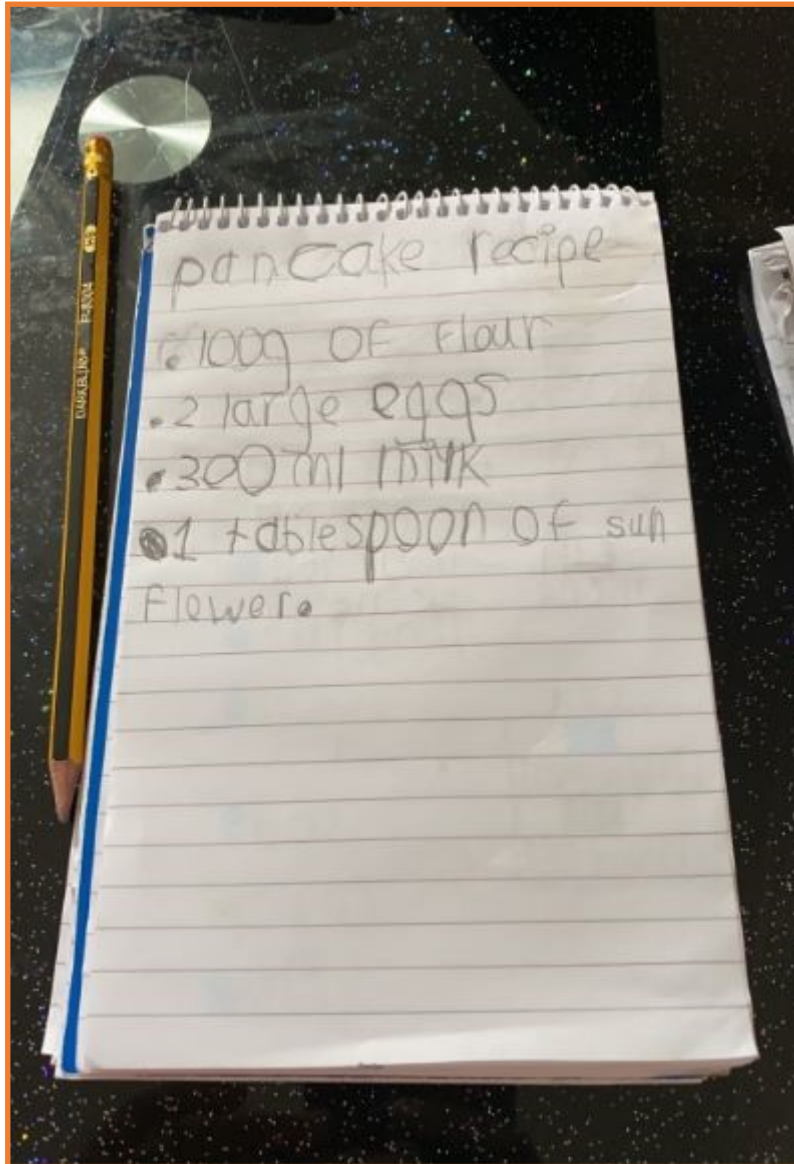 pancake recipe
. 100g of flour
. 2 large eggs
. 300 ml milk
. 1 tablespoon of sun
flower.